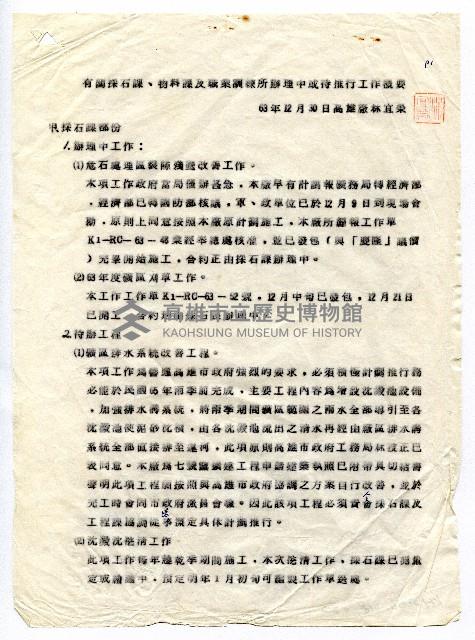 有關採石課、物料課及職業訓練所辦理中或待推行工作摘要
63年12月30日高雄廠林宜榮
甲採石課部份
1.辦理中工作：
(1)危石處理區裂隙殘壁改善工作。
本項工作政府當局催辦甚急，本廠早有計劃報礦務局轉經濟部
，經濟部已轉國防部核議，軍、政單位已於12月9日到現場會
勘，原則上同意按照本廠原計劃施工，本廠所簽報工作單
K1-RC-63-48業經奉總處核准，並已發包（與「慶隆」議價
）完畢開始施工，合約正由採石課辦理中。
(2)63年度礦區刈草工作。
本工作工作單K1-RC-63-52號，12月中旬已發包，12月21日
已開工，合約
高雄市立歷史博物館
KAOHSIUNG MUSEUM OF HISTORY
2.待辦工程
(1)礦區排水系統改善工程。
本項工作為善遵高雄市政府強烈的要求，必須積極計劃推行務
必能於民國65年雨季前完成，主要工程內容為增設沈澱池設備
，加強排水溝系統，將雨季期間礦區範圍之雨水全部導引至各
沈澱池使泥砂沈積，由各沈澱池流出之清水再經由廠區排水溝
系統全部直接排至運河，此項原則高雄市政府工務局林技正已
表同意。本廠為七號窯擴建工程申請建築執照已附帶具切結書
聲明此項工程願按照與高雄市政府協調之方案自行改善，並於
完工時會同市政府派員會驗。因此該項工程必須責會採石課及
工程課協調從事擬定具體計劃推行。
(2)沈澱池清工作
此項工作每年趁乾季期間施工，本次清工作，採石課已測量
完或繪圖中，預定明年1月初旬可編製工作單送處。